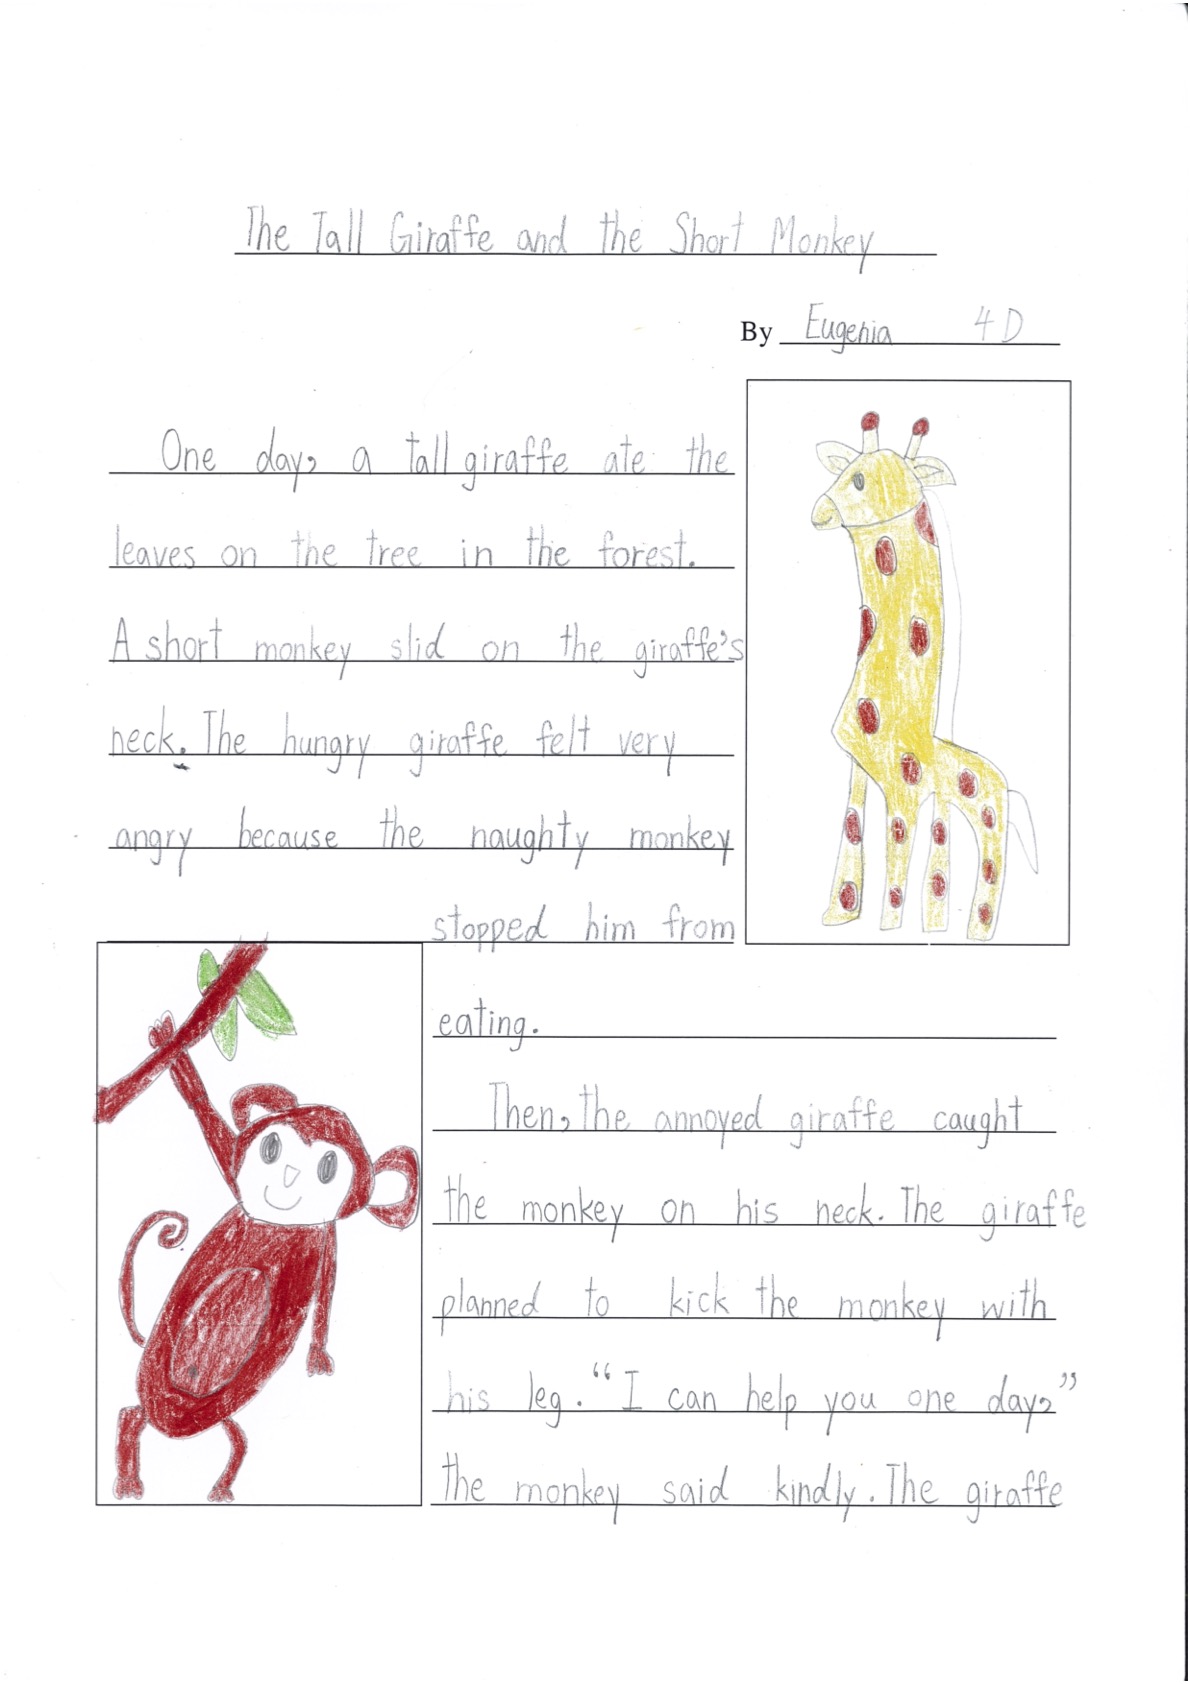 The Tall Giraffe and the Short Monkey
By Eugenia 4D
One day, a tall giraffe ate the
leaves on the tree in the forest.
A short monkey slid on the giraffe's
neck. The hungry giraffe felt very
angry because the naughty monkey
stopped him from
eating.
Then, the annoyed giraffe caught
the monkey on his neck. The giraffe
planned to kick the monkey with
his leg. “I can help you one day,”
the monkey said kindly. The giraffe